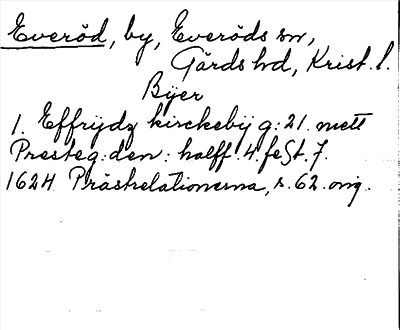 Everöd, by, Everöds sn,
Gärds hd, Krist. l.
Byer
1. Effrijdz kirckebÿ g: 21. mett
Presteg: den: halff. 4. feSt. 7.
1624 Prästrelationerna, s. 62. orig.